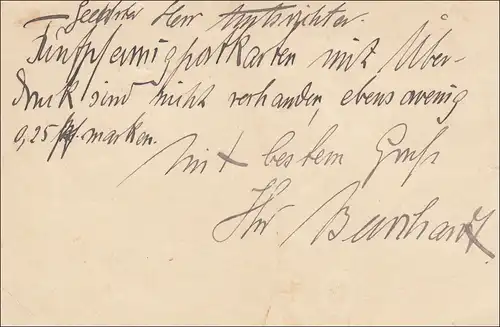 Geehrter Herr Amtsrichter.
Fünfpfennigpostkarten mit Über-
druck sind nicht vorhanden, ebensowenig
0,25 Pf. marken.
Mit bestem Gruß
Ihr